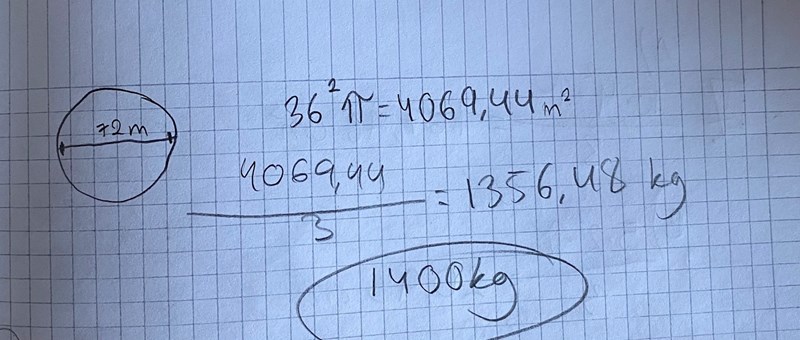 72 m
36²π = 4069,44 m²
4069,44
3
= 1356,48 kg
1400kg